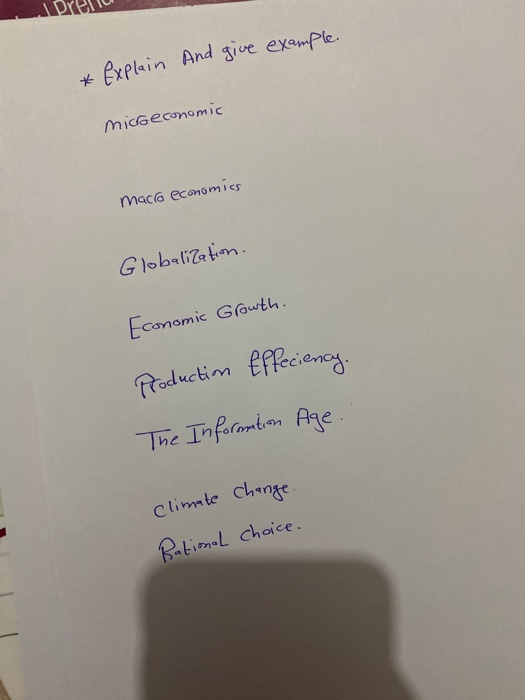 * Explain And give example.
microeconomic
macro economics
Globalization.
Economic Growth.
Production Effeciency.
The Information Age.
Climate Change.
Rational Choice.